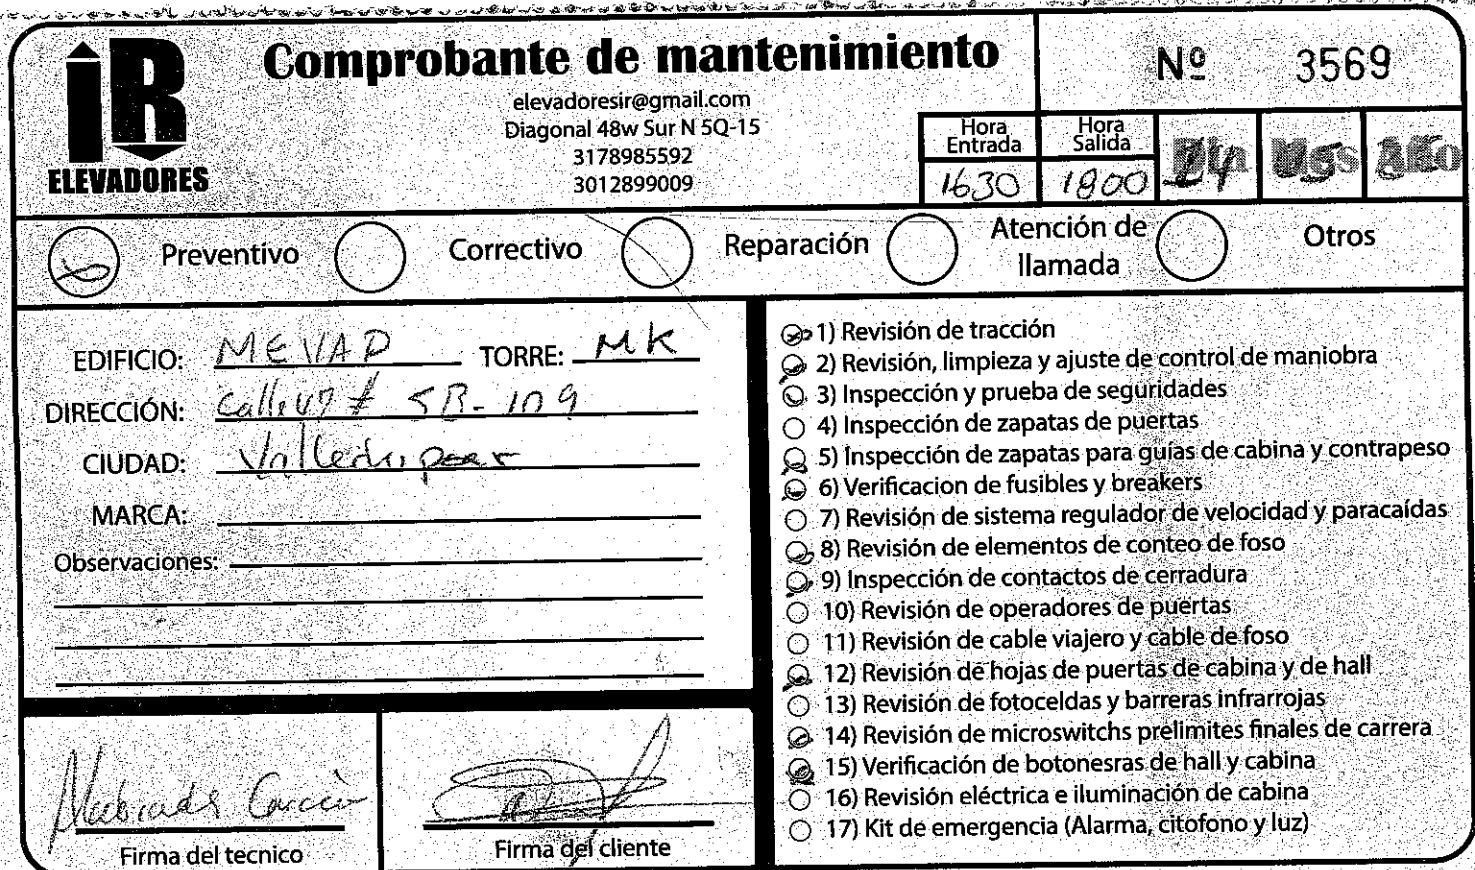 Comprobante de mantenimiento
Nº 3569
IR
ELEVADORES
elevadoresir@gmail.com
Diagonal 48w Sur N 5Q-15
3178985592
3012899009
Hora Entrada
Hora Salida
Día Mes Año
1630 1800
Preventivo
Correctivo
Reparación
Atención de llamada
Otros
EDIFICIO: MEVAP TORRE: MK
DIRECCIÓN: # 5B-109
CIUDAD: Valledupar
MARCA:
Observaciones:
1) Revisión de tracción
2) Revisión, limpieza y ajuste de control de maniobra
3) Inspección y prueba de seguridades
4) Inspección de zapatas de puertas
5) Inspección de zapatas para guías de cabina y contrapeso
6) Verificacion de fusibles y breakers
7) Revisión de sistema regulador de velocidad y paracaídas
8) Revisión de elementos de conteo de foso
9) Inspección de contactos de cerradura
10) Revisión de operadores de puertas
11) Revisión de cable viajero y cable de foso
12) Revisión de hojas de puertas de cabina y de hall
13) Revisión de fotoceldas y barreras infrarrojas
14) Revisión de microswitchs prelimites finales de carrera
15) Verificación de botonesras de hall y cabina
16) Revisión eléctrica e iluminación de cabina
17) Kit de emergencia (Alarma, citofono y luz)
Firma del tecnico
Firma del cliente